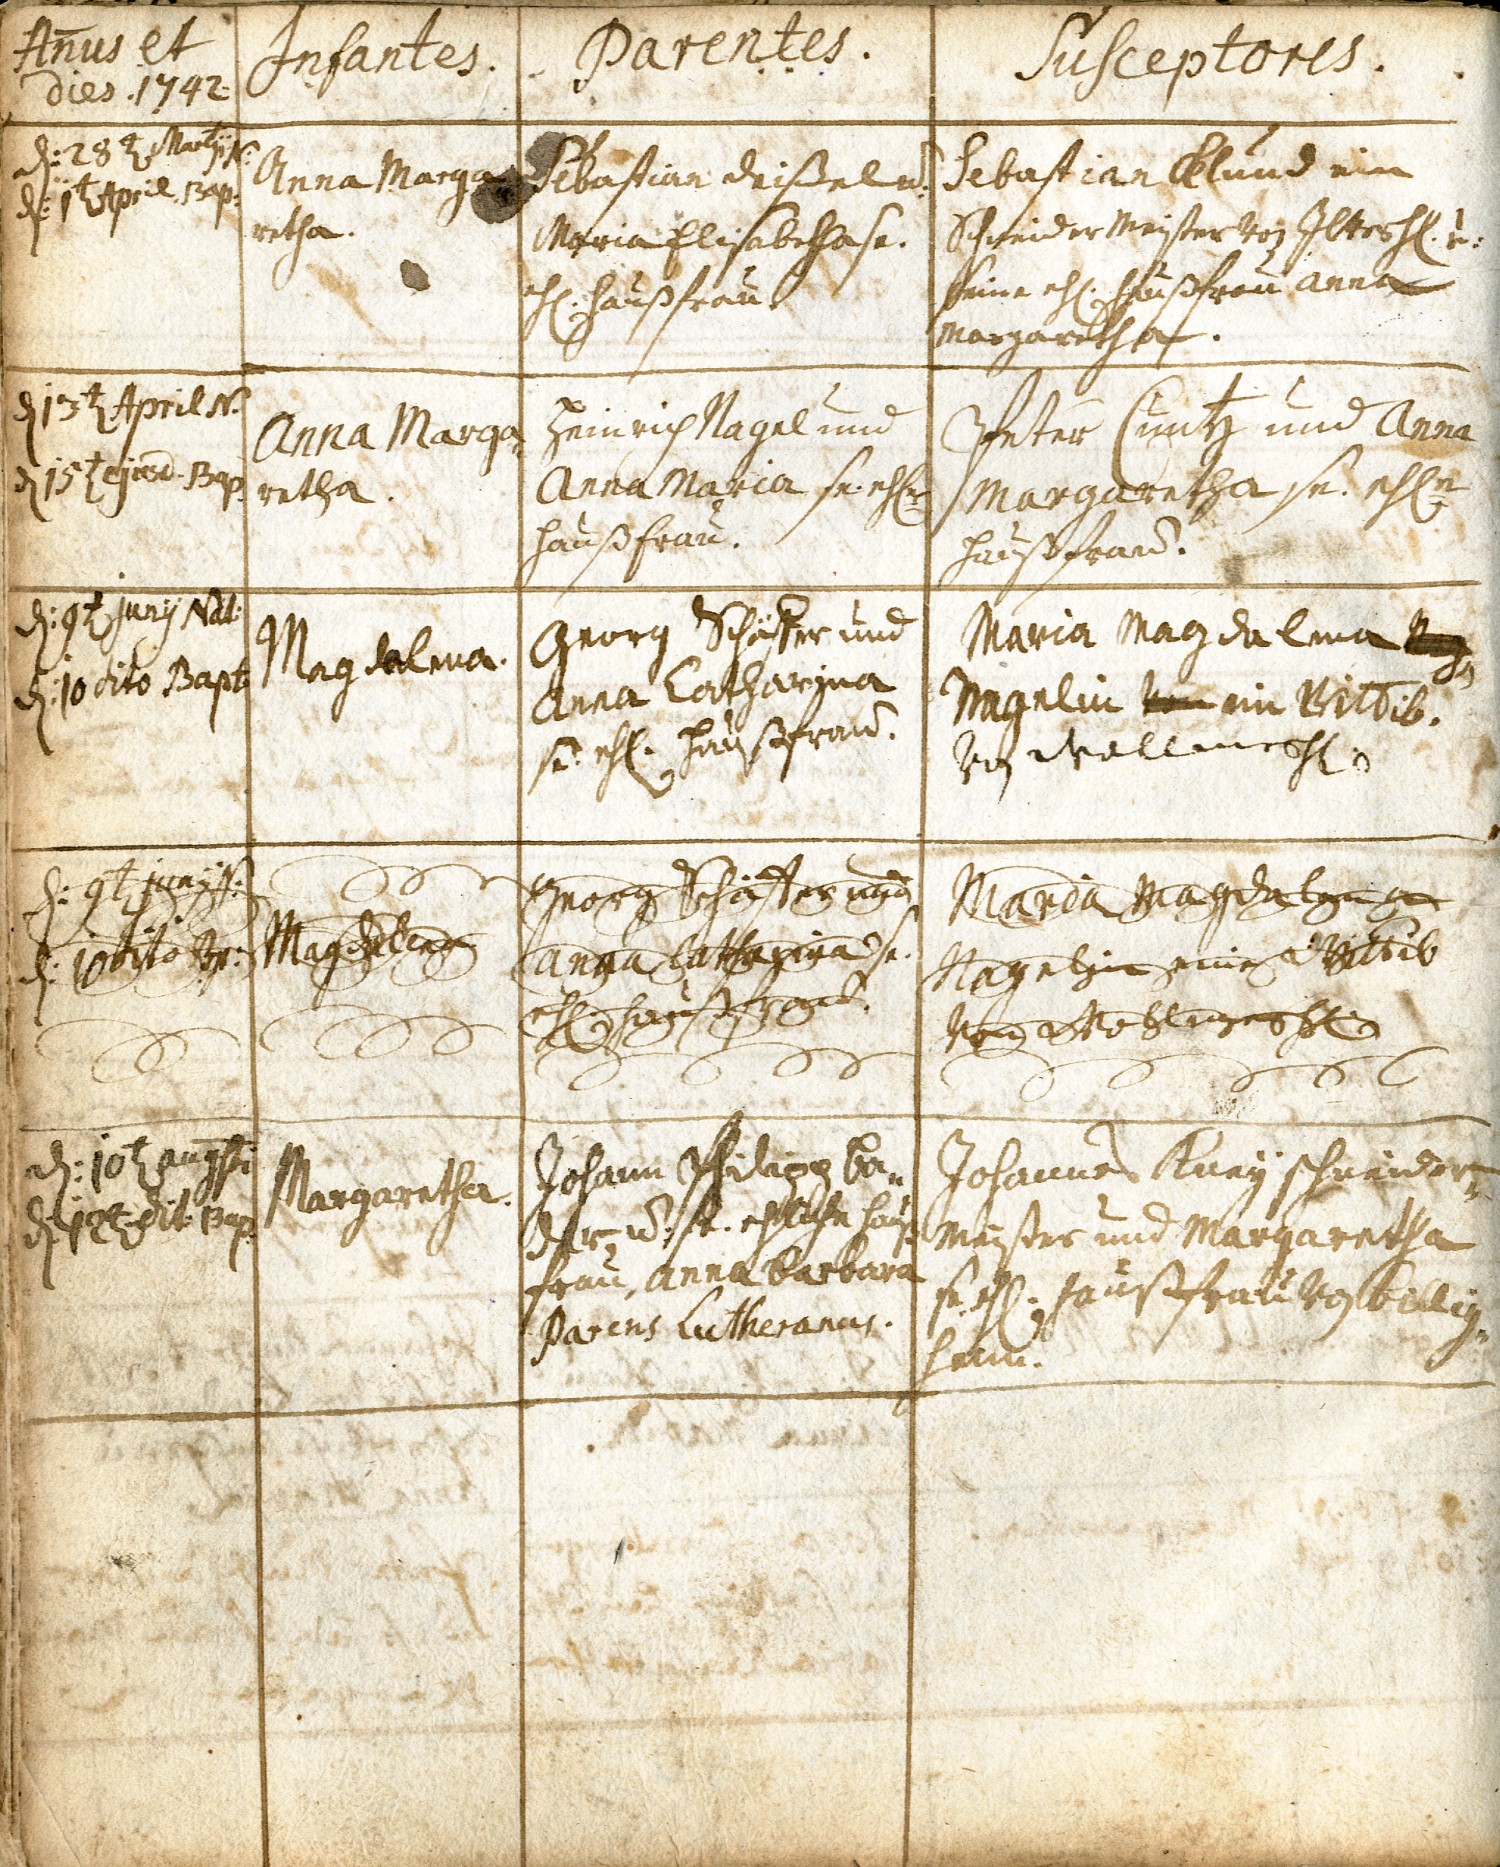 Añus et
dies. 1742.
Infantes.
Parentes.
Susceptores.
d: 28t Martij N:
d: 1t April. Bap:
Anna Marga
retha.
Sebastian Deißel u.
Maria Elisabetha se.
ehl. haußfrau.
Sebastian ein
Schneider Meister von Ilbesh. u:
seine ehl. haußfrau Anna
Margaretha.
d 13t April N.
d 15t ejusd. Bap.
Anna Marga
retha.
Heinrich Nagel und
Anna Maria se. ehl
haußfrau.
Peter Cuntz und Anna
Margaretha se. ehl
haußfrau.
d: 9t Junij Nat:
d: 10 dito Bapt
Magdalena.
Georg Schäffer und
Anna Catharina
se. ehl. haußfrau.
Maria Magdalena
Nagelin ein Wittib.
von Wollmesh.
d: 9t Junij N:
d: 10 dito Bp:
Magdalena
Georg Schäffer und
Anna Catharina se.
ehl. haußfrau.
Maria Magdalena
Nagelin eine Wittib
von Wohlmesh.
d: 10t augsti
d: 12t dit: Bap:
Margaretha.
Johann Philipp Ba-
der u: se. ehliche hauß
frau, Anna Barbara
Parens Lutheranus.
Johannes Kuey schneider-
meister und Margaretha
se. ehl. haußfrau von Billig-
heim.